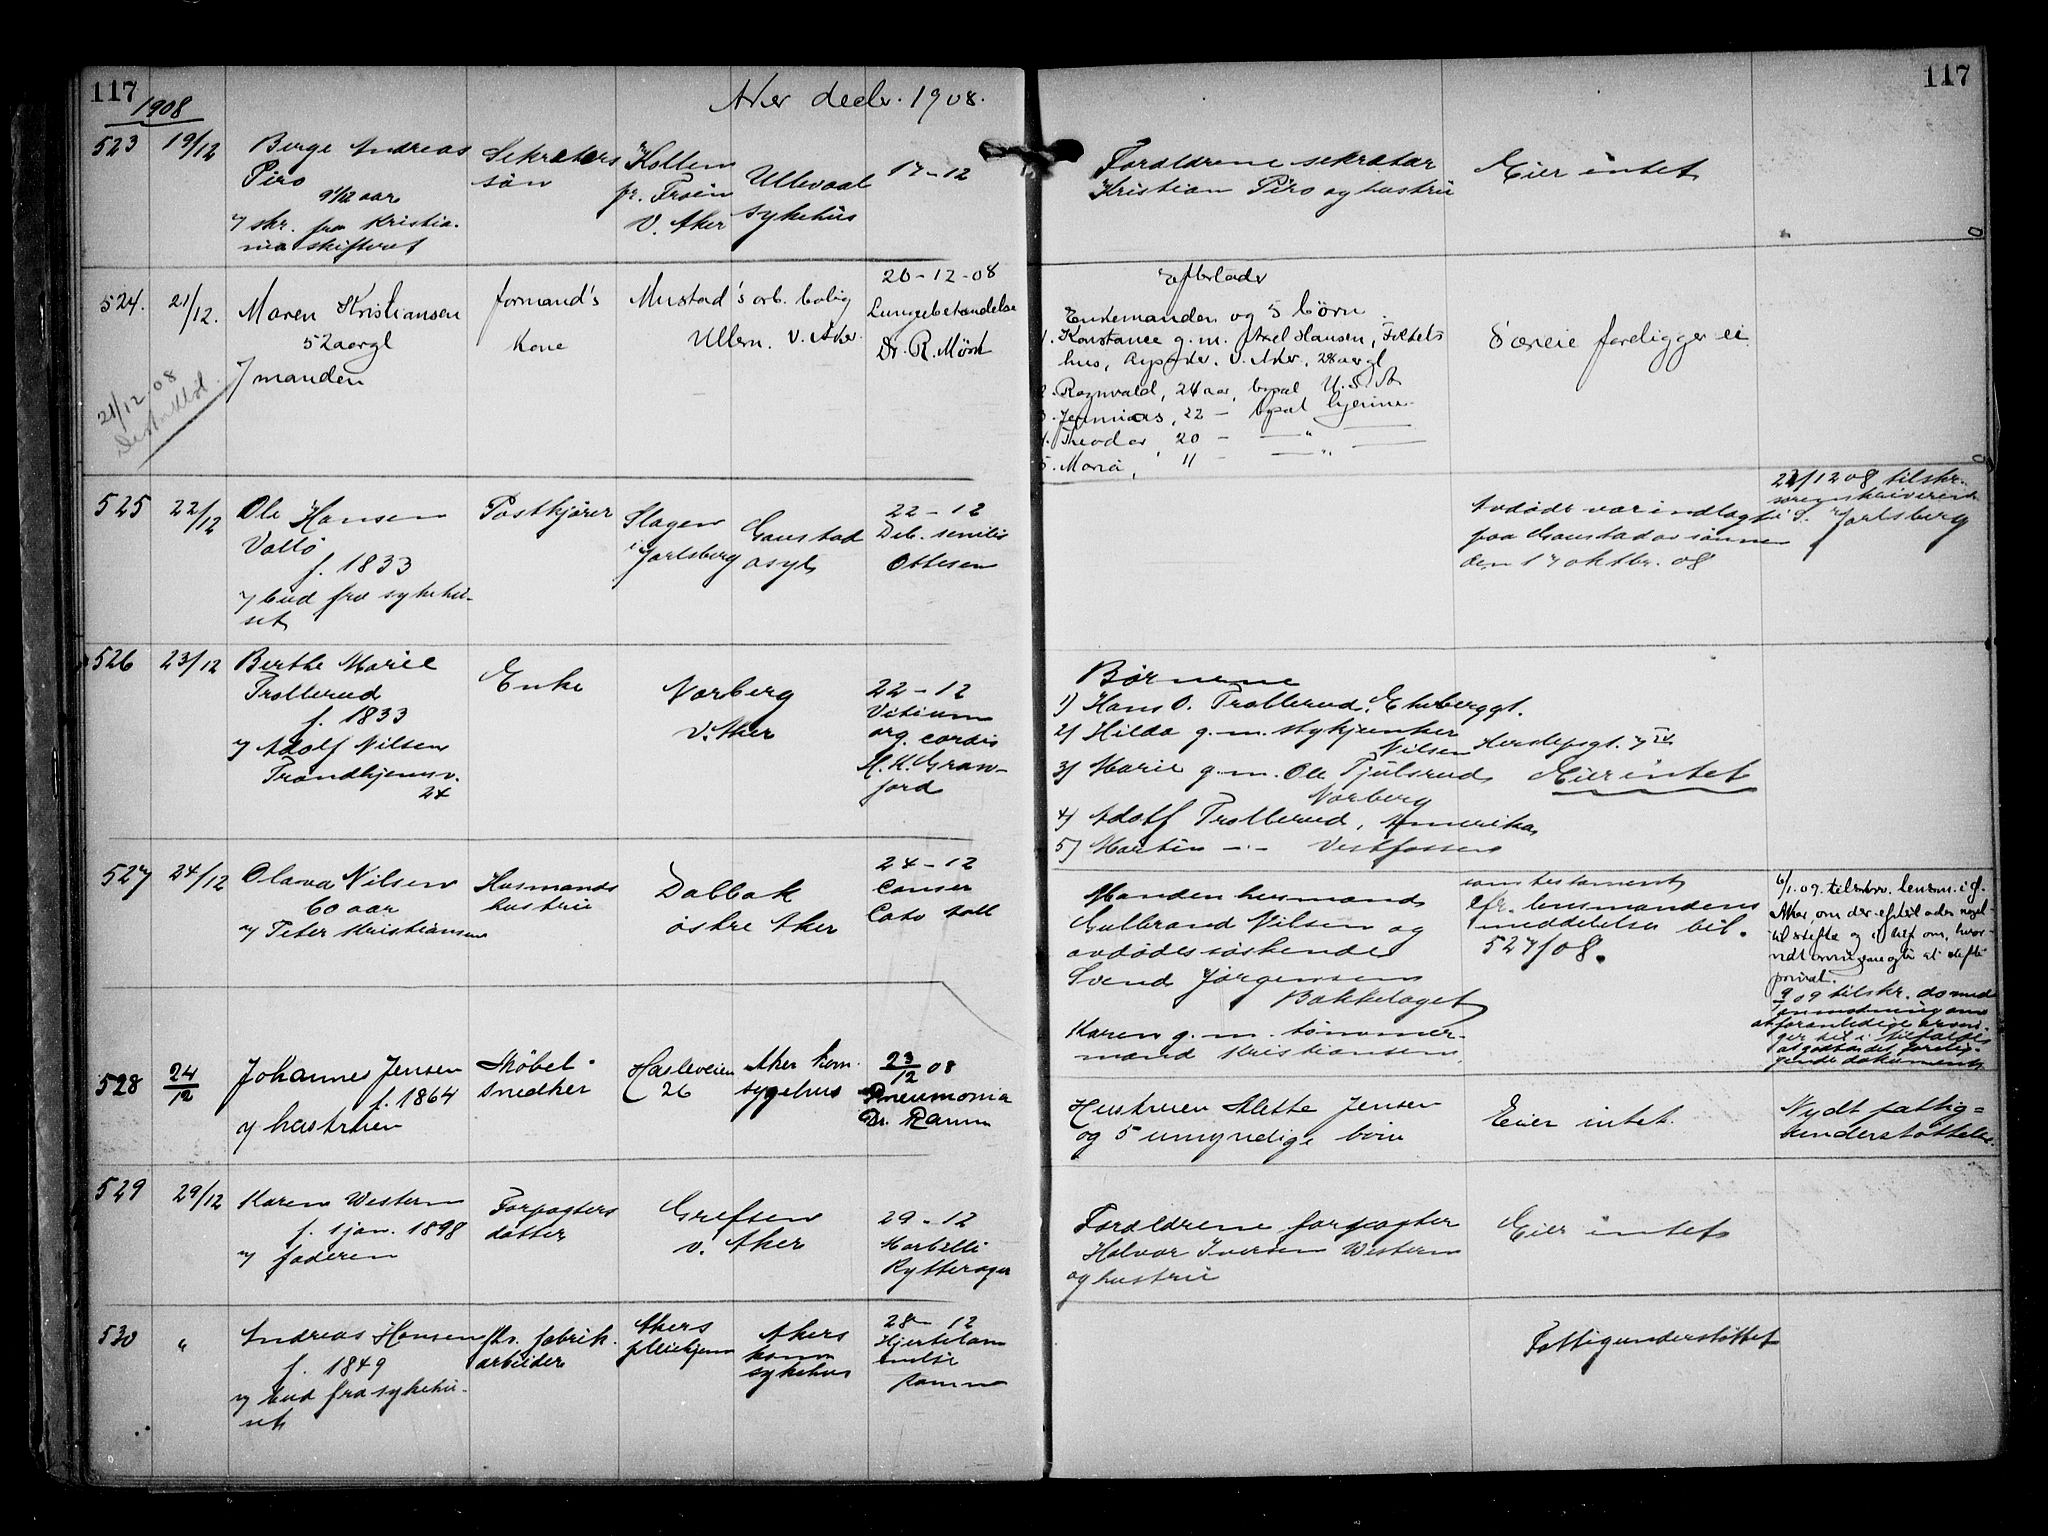 117
1908
Aker decbr. 1908.
117
523
19/12
Birge Andreas
Piro
9 1/2 aar
v/ skr. fra Kristia-
nia skifteret
Sekretærs
søn
Holmen
pr. Frøen
V. Aker
Ullevaal
sykehus
17-12
Forældrene sekretær
Kristian Piro og hustru
Eier intet
524.
21/12.
Maren Kristiansen
52 aargl
v/ manden
21/12 08
formand's
kone
Mustad's arb. bolig
Ullern. V. Aker.
20-12-08
Lungebetændelse
Dr. R. Mørk
Efterlader
Enkemanden og 5 børn.
1. Konstance g.m. Axel Hansen, Folkets
hus, V. Aker, 28 aargl
2. Ragnvald, 24 aar, bopæl U.S.A.
3. Jenny, 22 - bopæl hjemme
4. Theodor, 20 - — " —
5. Maria, 11 - — " —
Særeie foreligger ei.
525
22/12
Ole Hansen
Vallø
f. 1833
v/ bud fra sykehu-
set
Postkjører
Slagen
i Jarlsberg
Gaustad
asyl
22-12
Deb. senilis
Ottesen
Avdøde var indlagt
paa Gaustad av sønnen
den 17 oktbr. 08
22/12 08 tilskr.
sorenskriveren
i S. Jarlsberg
526
23/12
Berthe Marie
Trollerud
f. 1833
v/ Adolf Nilsen
Trondhjemsv.
24
Enke
Norberg
V. Aker
22-12
Vitium
org. cordis
M. K. Gran-
fjord
Børnene
1) Hans O. Trollerud, Ekeberggt.
2) Hilda g.m. stykjunker
Nilsen Herslepsgt. 7 IV
3) Marie g.m. Ole Tjulsrud,
Norberg
4) Adolf Trollerud, Amerika
5) Martin -"- Vestfossen
Eier intet
527
24/12
Olava Nilsen
60 aar
v/ Peter Kristiansen
Husmands
hustru
Dalbak
østre Aker
24-12
Canser
Cato Aall
Manden husmand
Gulbrand Nilsen og
avdødes søskende
Svend Jørgensen
Bakkelaget
Karen g.m. tømmer-
mand Kristiansen.
samt testament
cfr. lensmandens
meddelelse bil.
527/08.
6/1.09. tilskrv. lensm. i Ø.
Aker, om der efterlades noget
til skifte og i tilf om, hvor-
vidt arvingene agter at skifte
privat.
9/1 09 tilskr. do med
anmodning om
at foranledige arvin-
ger til i tilfælde
foreliggende dokument
528
24/12
Johannes Jensen
f. 1864
v/ hustruen
Møbel-
snedker
Hasleveien
26
Aker kom.
sygehus
23/12 08
Pneumonia
Dr. Ramm
Hustruen Mette Jensen
og 5 umyndige børn
Eier intet.
Nydt fattig-
understøttelse.
529
29/12
Karen Western
f. 1 jan. 1898
v/ faderen
Forpagters
datter
Grefsen
v. Aker
29-12
Morbilli
Rytterager
Forældrene forpagter
Halvor Iversen Western
og hustru
Eier intet
530
"
Andreas Hansen
f. 1849
v/ bud fra sykehu-
set
fhv. fabrik-
arbeider
Akers
pleiehjem
Akers
komm
sykehus
28-12
Hjertelam
melse
Ramm
Fattigunderstøttet